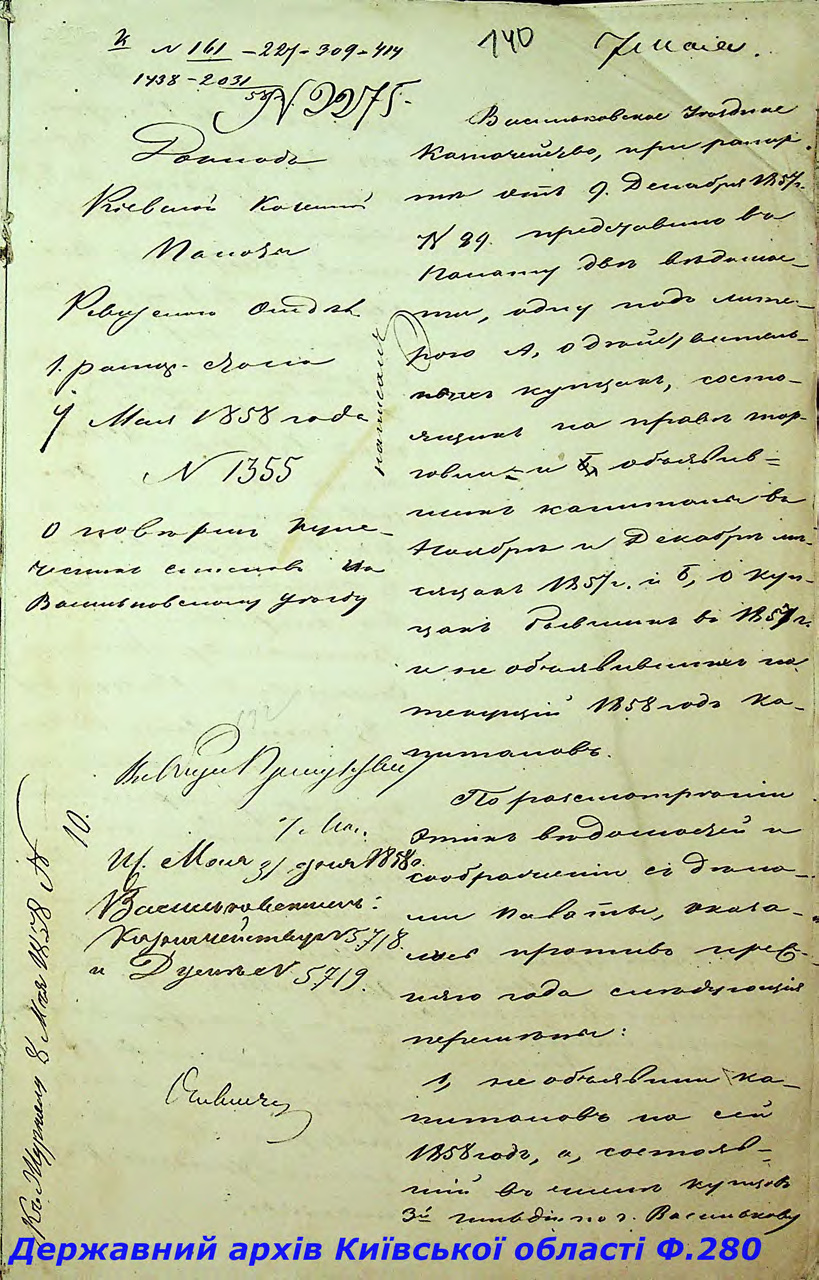 К N 161 - 227 - 309 - 414
1438 - 2031
N 2275.
140
7 мая.
Докладъ
Кіевской Казенной
Палаты
Ревизскаго Отдѣл.
1. стола
7 Мая 1858 года
N 1355
О повѣркѣ купе-
ческихъ списковъ по
Васильковскому уѣзду
Васильковское Уѣздное
Казначейство, при рапор-
тѣ отъ 9. Декабря 1857 г.
N 89. представило въ
Палату двѣ вѣдомос-
ти, одну подъ лите-
рою А, о
купцахъ, состо-
ящихъ на правѣ тор-
говли и объявив-
шихъ капиталы въ
Ноябрѣ и Декабрѣ мѣ-
сяцахъ 1857 г. и Б, о куп-
цахъ бывшихъ въ 1857 г.
и не объявившихъ на
текущій 1858 годъ ка-
питаловъ.
По разсмотреніи
этихъ вѣдомостей и
соображеніи съ дѣла-
ми Палаты, оказа-
лись противо преж-
няго года слѣдующія
перемѣны:
1, не объявили ка-
питаловъ на сей
1858 годъ, а, состояв-
шій въ числѣ купцовъ
3й гильдіи по г. Василькову
написано
Мая 31 дня 1858 г.
Васильковскимъ:
Казначейству N 5718.
и Думѣ N 5719.
Къ Журналу 8 Мая 1858 N
10.
Державний архів Київської області Ф.280